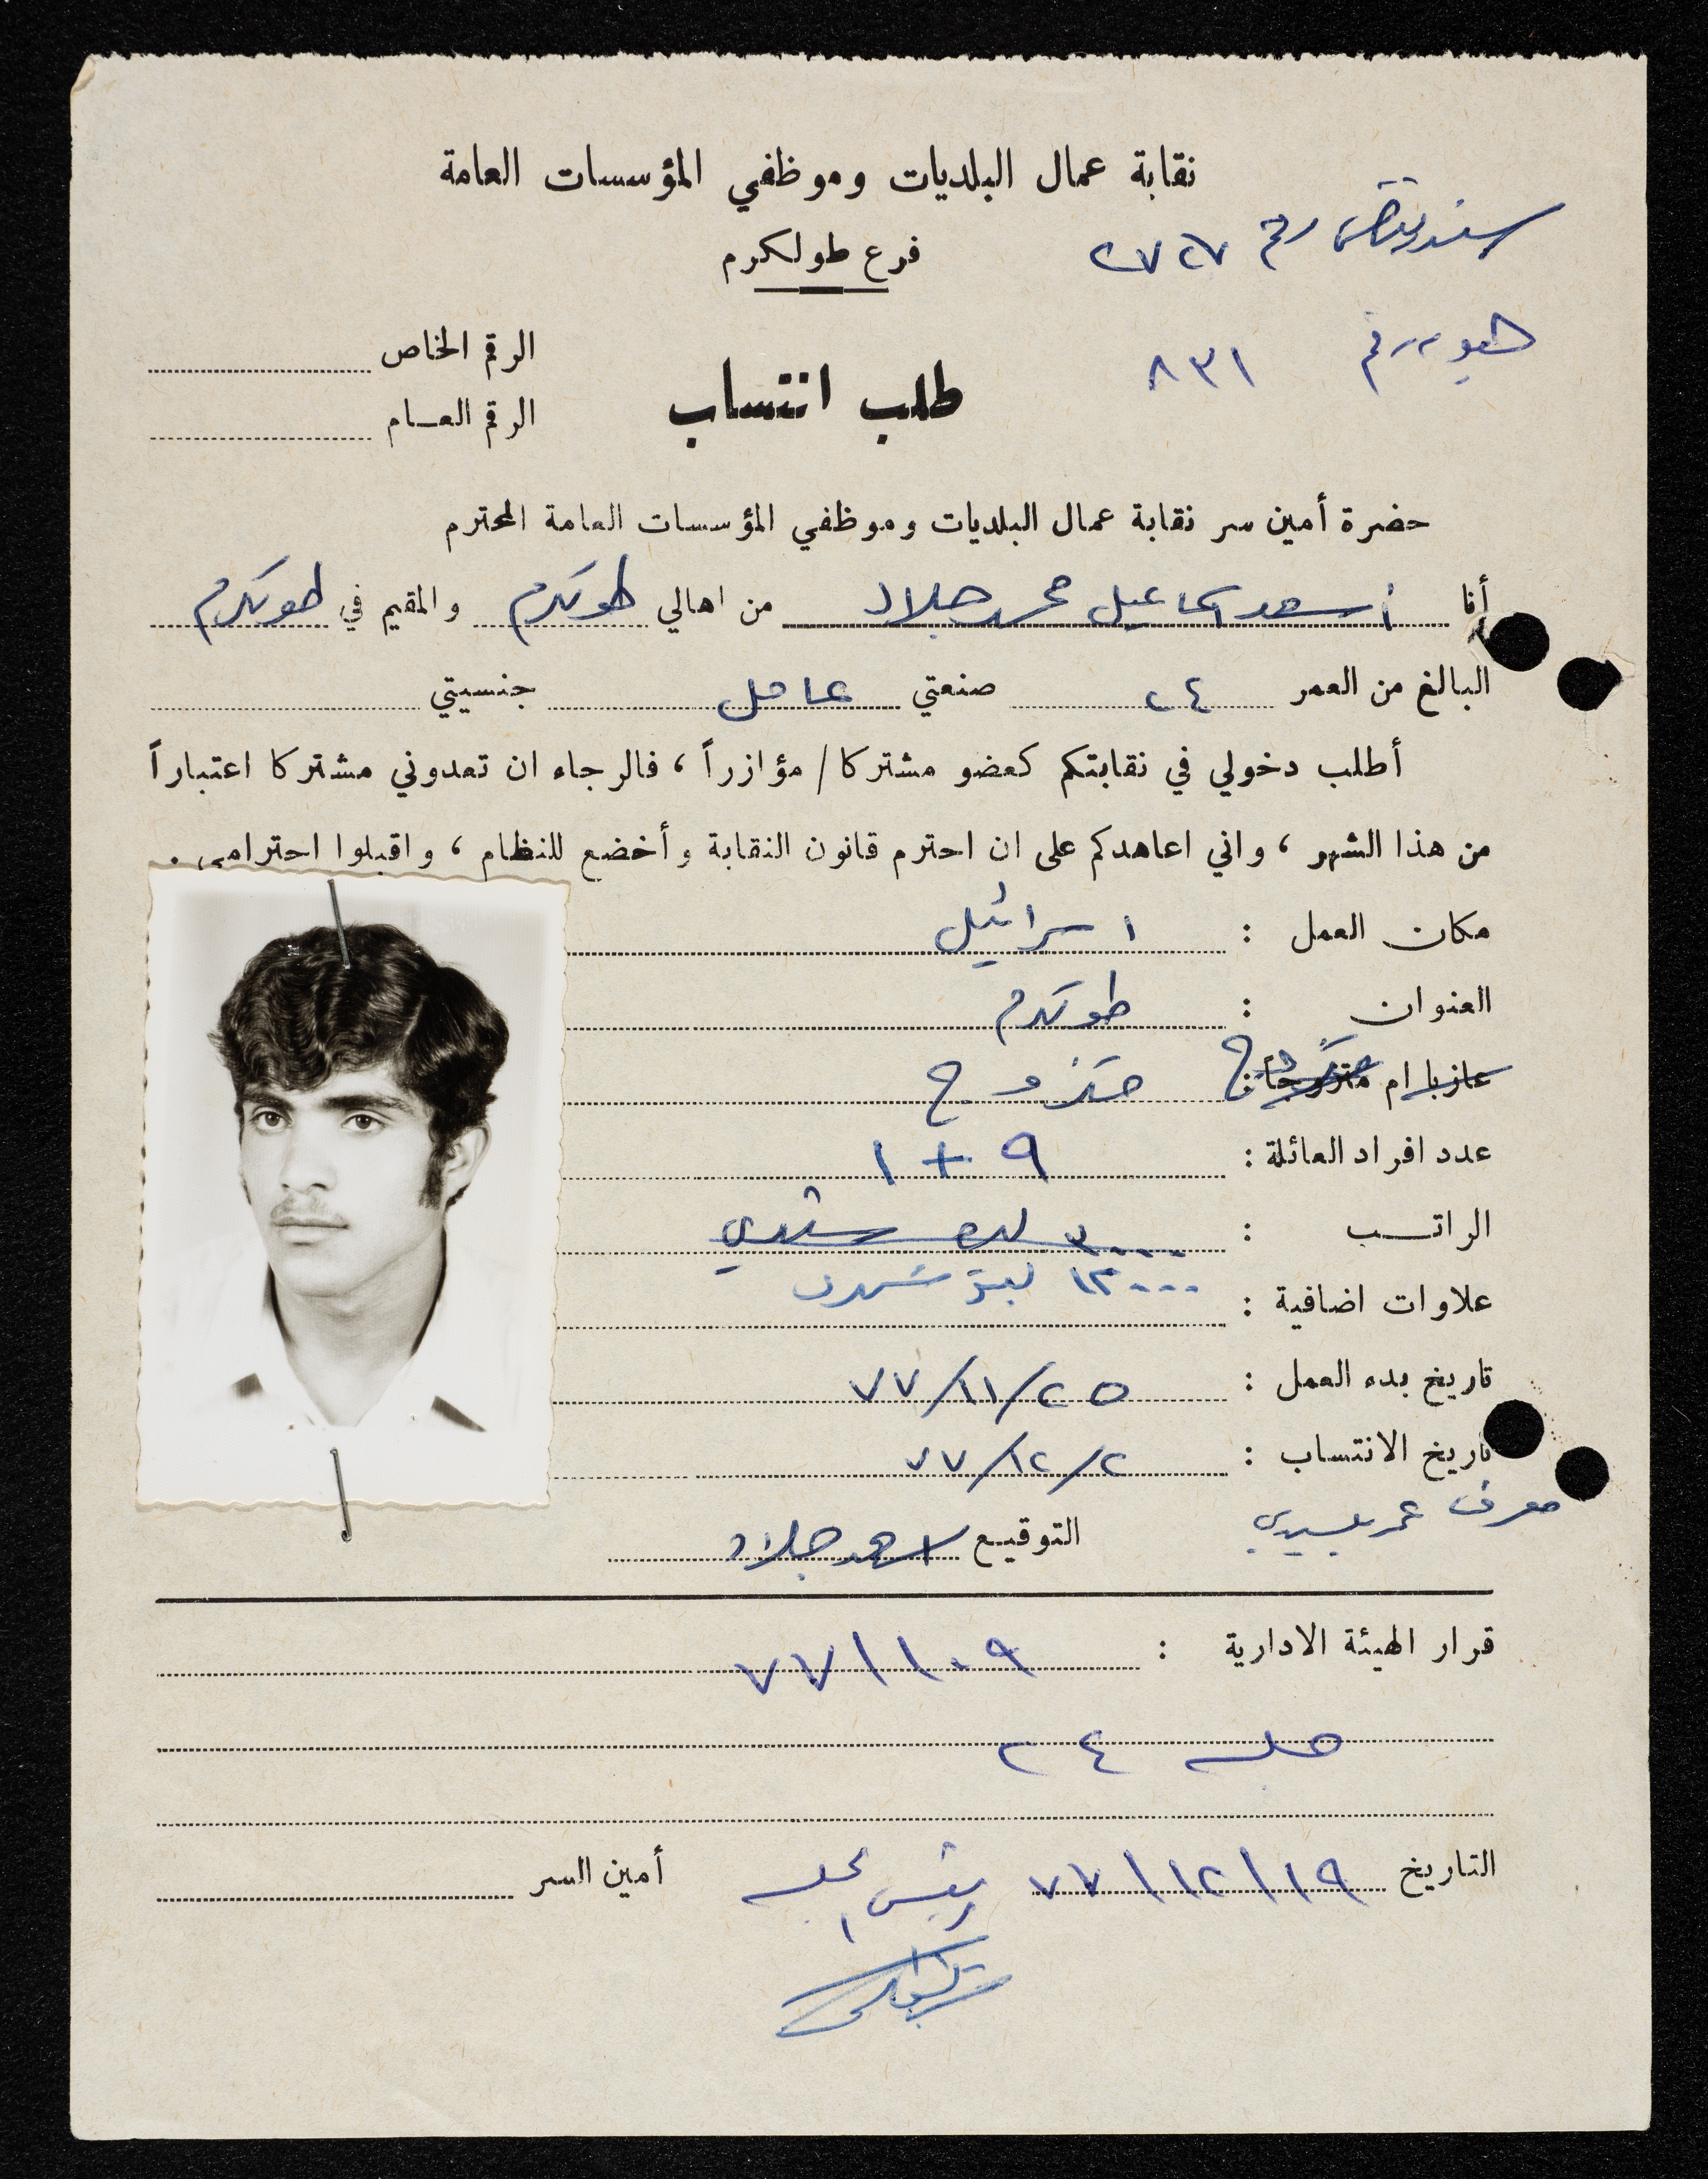 نقابة عمال البلديات وموظفي المؤسسات العامة
فرع طولكرم
سند رقم ٢٧٢٧
هوية رقم ٨٣١
الرقم الخاص
طلب انتساب
الرقم العـام
حضرة أمين سر نقابة عمال البلديات وموظفي المؤسسات العامة المحترم
أنا أسعد اسماعيل محمد جلاد من اهالي طولكرم والمقيم في طولكرم
البالغ من العمر ٢٤ صنعتي عامل جنسيتي
أطلب دخولي في نقابتكم كعضو مشتركا/مؤازراً ، فالرجاء ان تعدوني مشتركا اعتباراً
من هذا الشهر ، واني اعاهدكم على ان احترم قانون النقابة وأخضع للنظام ، واقبلوا احترامي .
مكان العمل : اسرائيل
العنوان : طولكرم
عازبا ام متزوجاً : متزوج
عدد افراد العائلة : ٩ + ١
الراتـب : ٣٠٠٠ ليرة شهري
١٢٠٠٠ ليرة شهري
علاوات اضافية :
تاريخ بدء العمل : ٢٥/١١/٧٧
تاريخ الانتساب : ٢/١٢/٧٧
معرف عمر
التوقيـع اسعد جلاد
قرار الهيئة الادارية : ١٠٩/٧٧
جلسة ٢٤
التاريخ ١٩/١٢/٧٧ رئيس الجلسة أمين السر